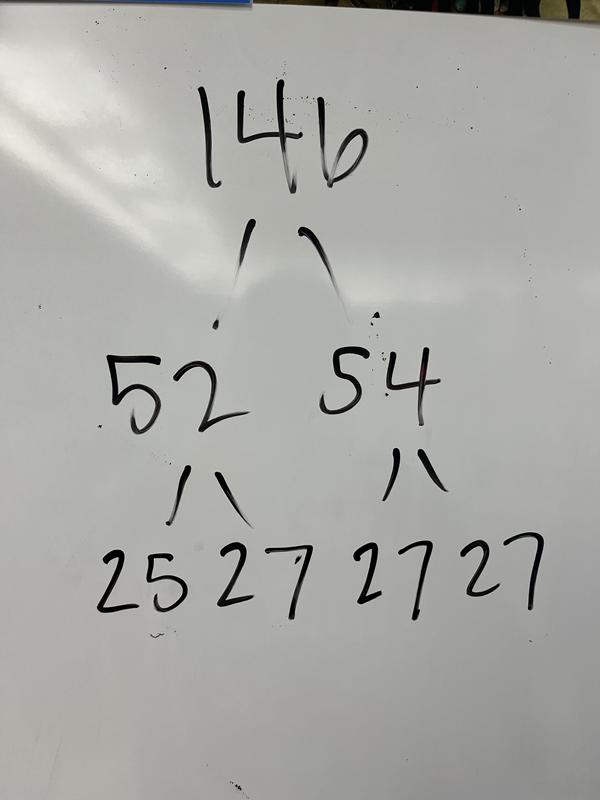 146
52 54
25 27 27 27